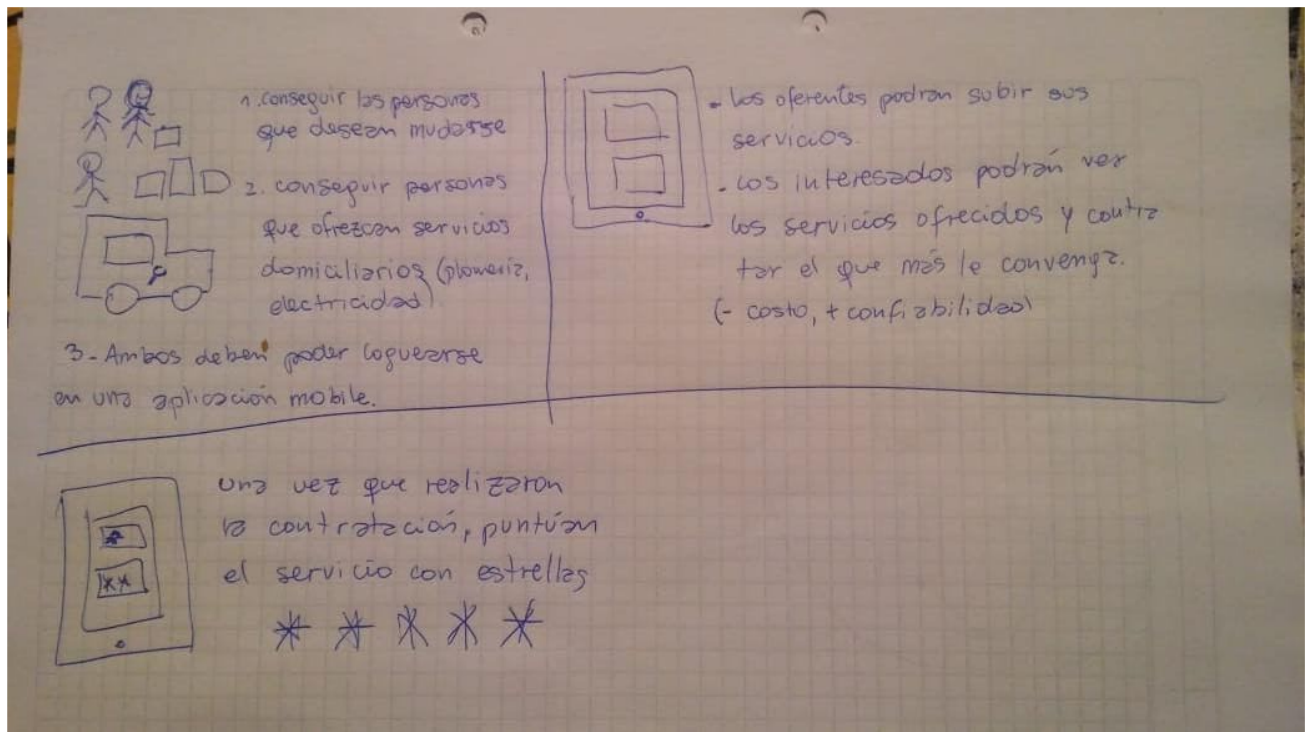 1. conseguir las personas
que desean mudarse
2. conseguir personas
que ofrezcan servicios
domiciliarios (plomería,
electricidad)
3- Ambos deben poder loguearse
en una aplicación mobile.
- Los oferentes podrán subir sus
servicios.
- Los interesados podrán ver
los servicios ofrecidos y contra
tar el que más le convenga.
(- costo, + confiabilidad)
una vez que realizaron
la contratación, puntúan
el servicio con estrellas